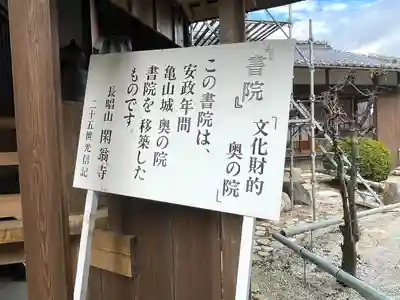 『書院』
「文化財的
奥の院」
この書院は、
安政年間
亀山城 奥の院
書院を移築した
ものです。
長唱山 閑翁寺
二十五世光信記